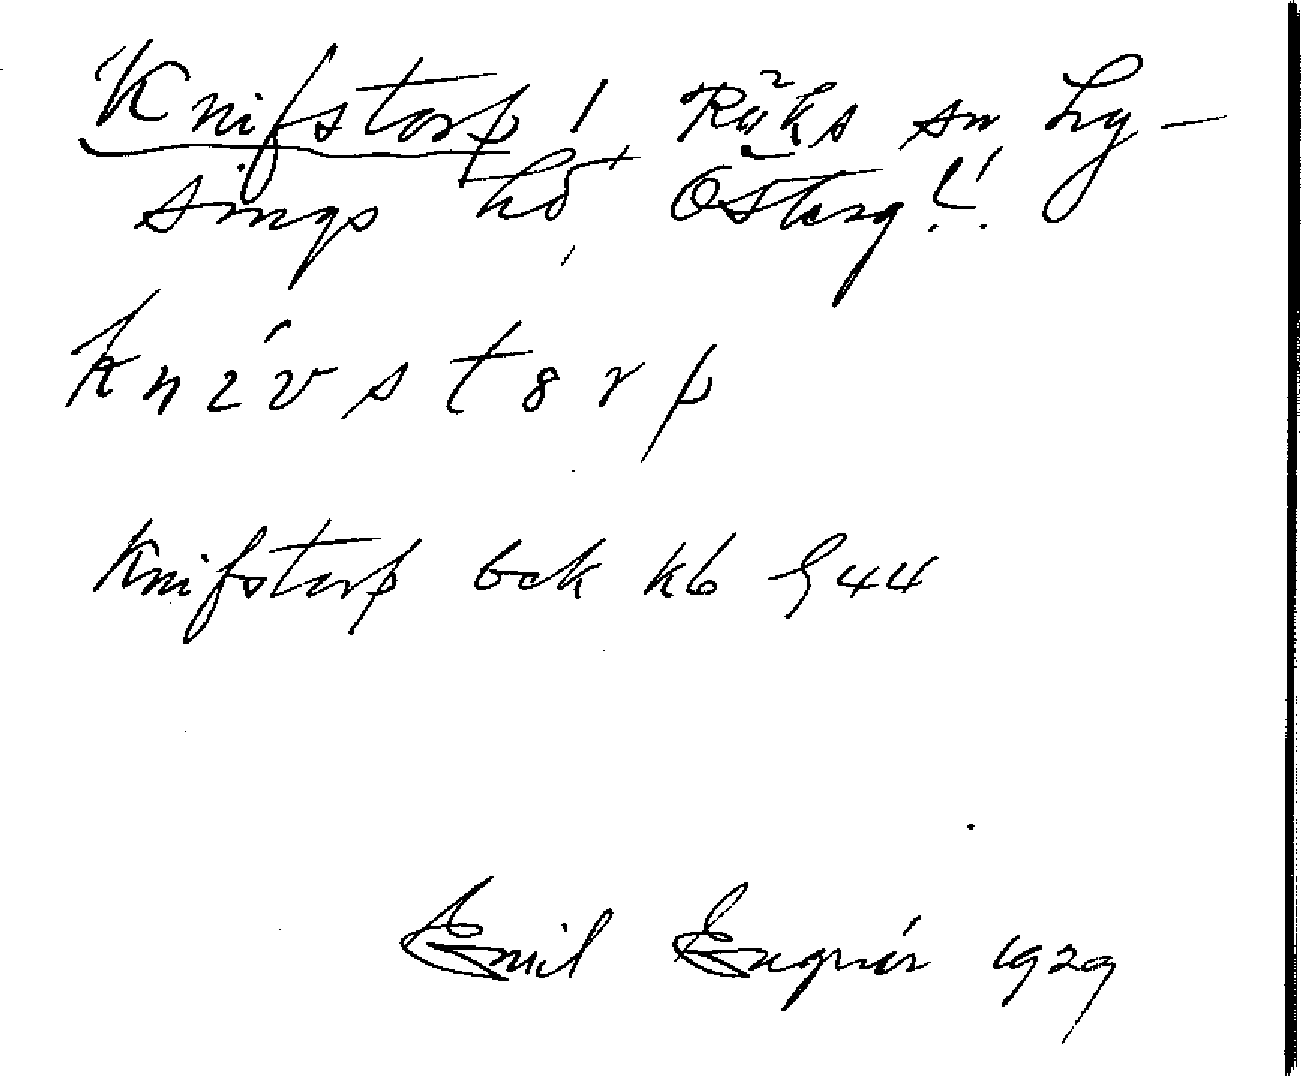 Knifstorp! Röks sn Ly-
sings hd, Österg!.
k n í v s t o r p
Knifstorp bek kb 1844
Emil Engnér 1929